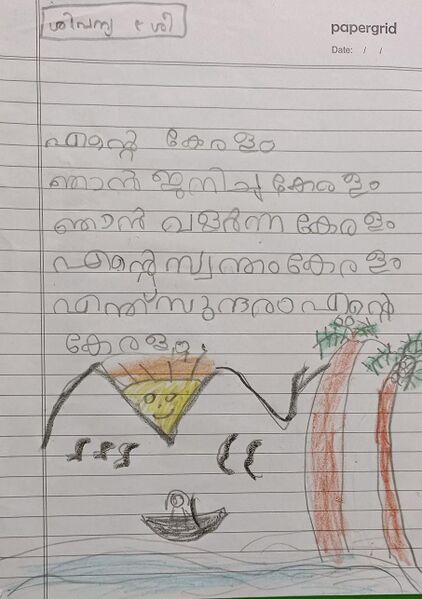 ശിവന്യ ९ ശി
papergrid
Date: / /
എന്റെ കേരളം
ഞാൻ ജനിച്ച കേരളം
ഞാൻ വളർന്ന കേരളം
എന്റെ സ്വന്തം കേരളം
എന്ത് സുന്ദരം എന്റെ
കേരളം.